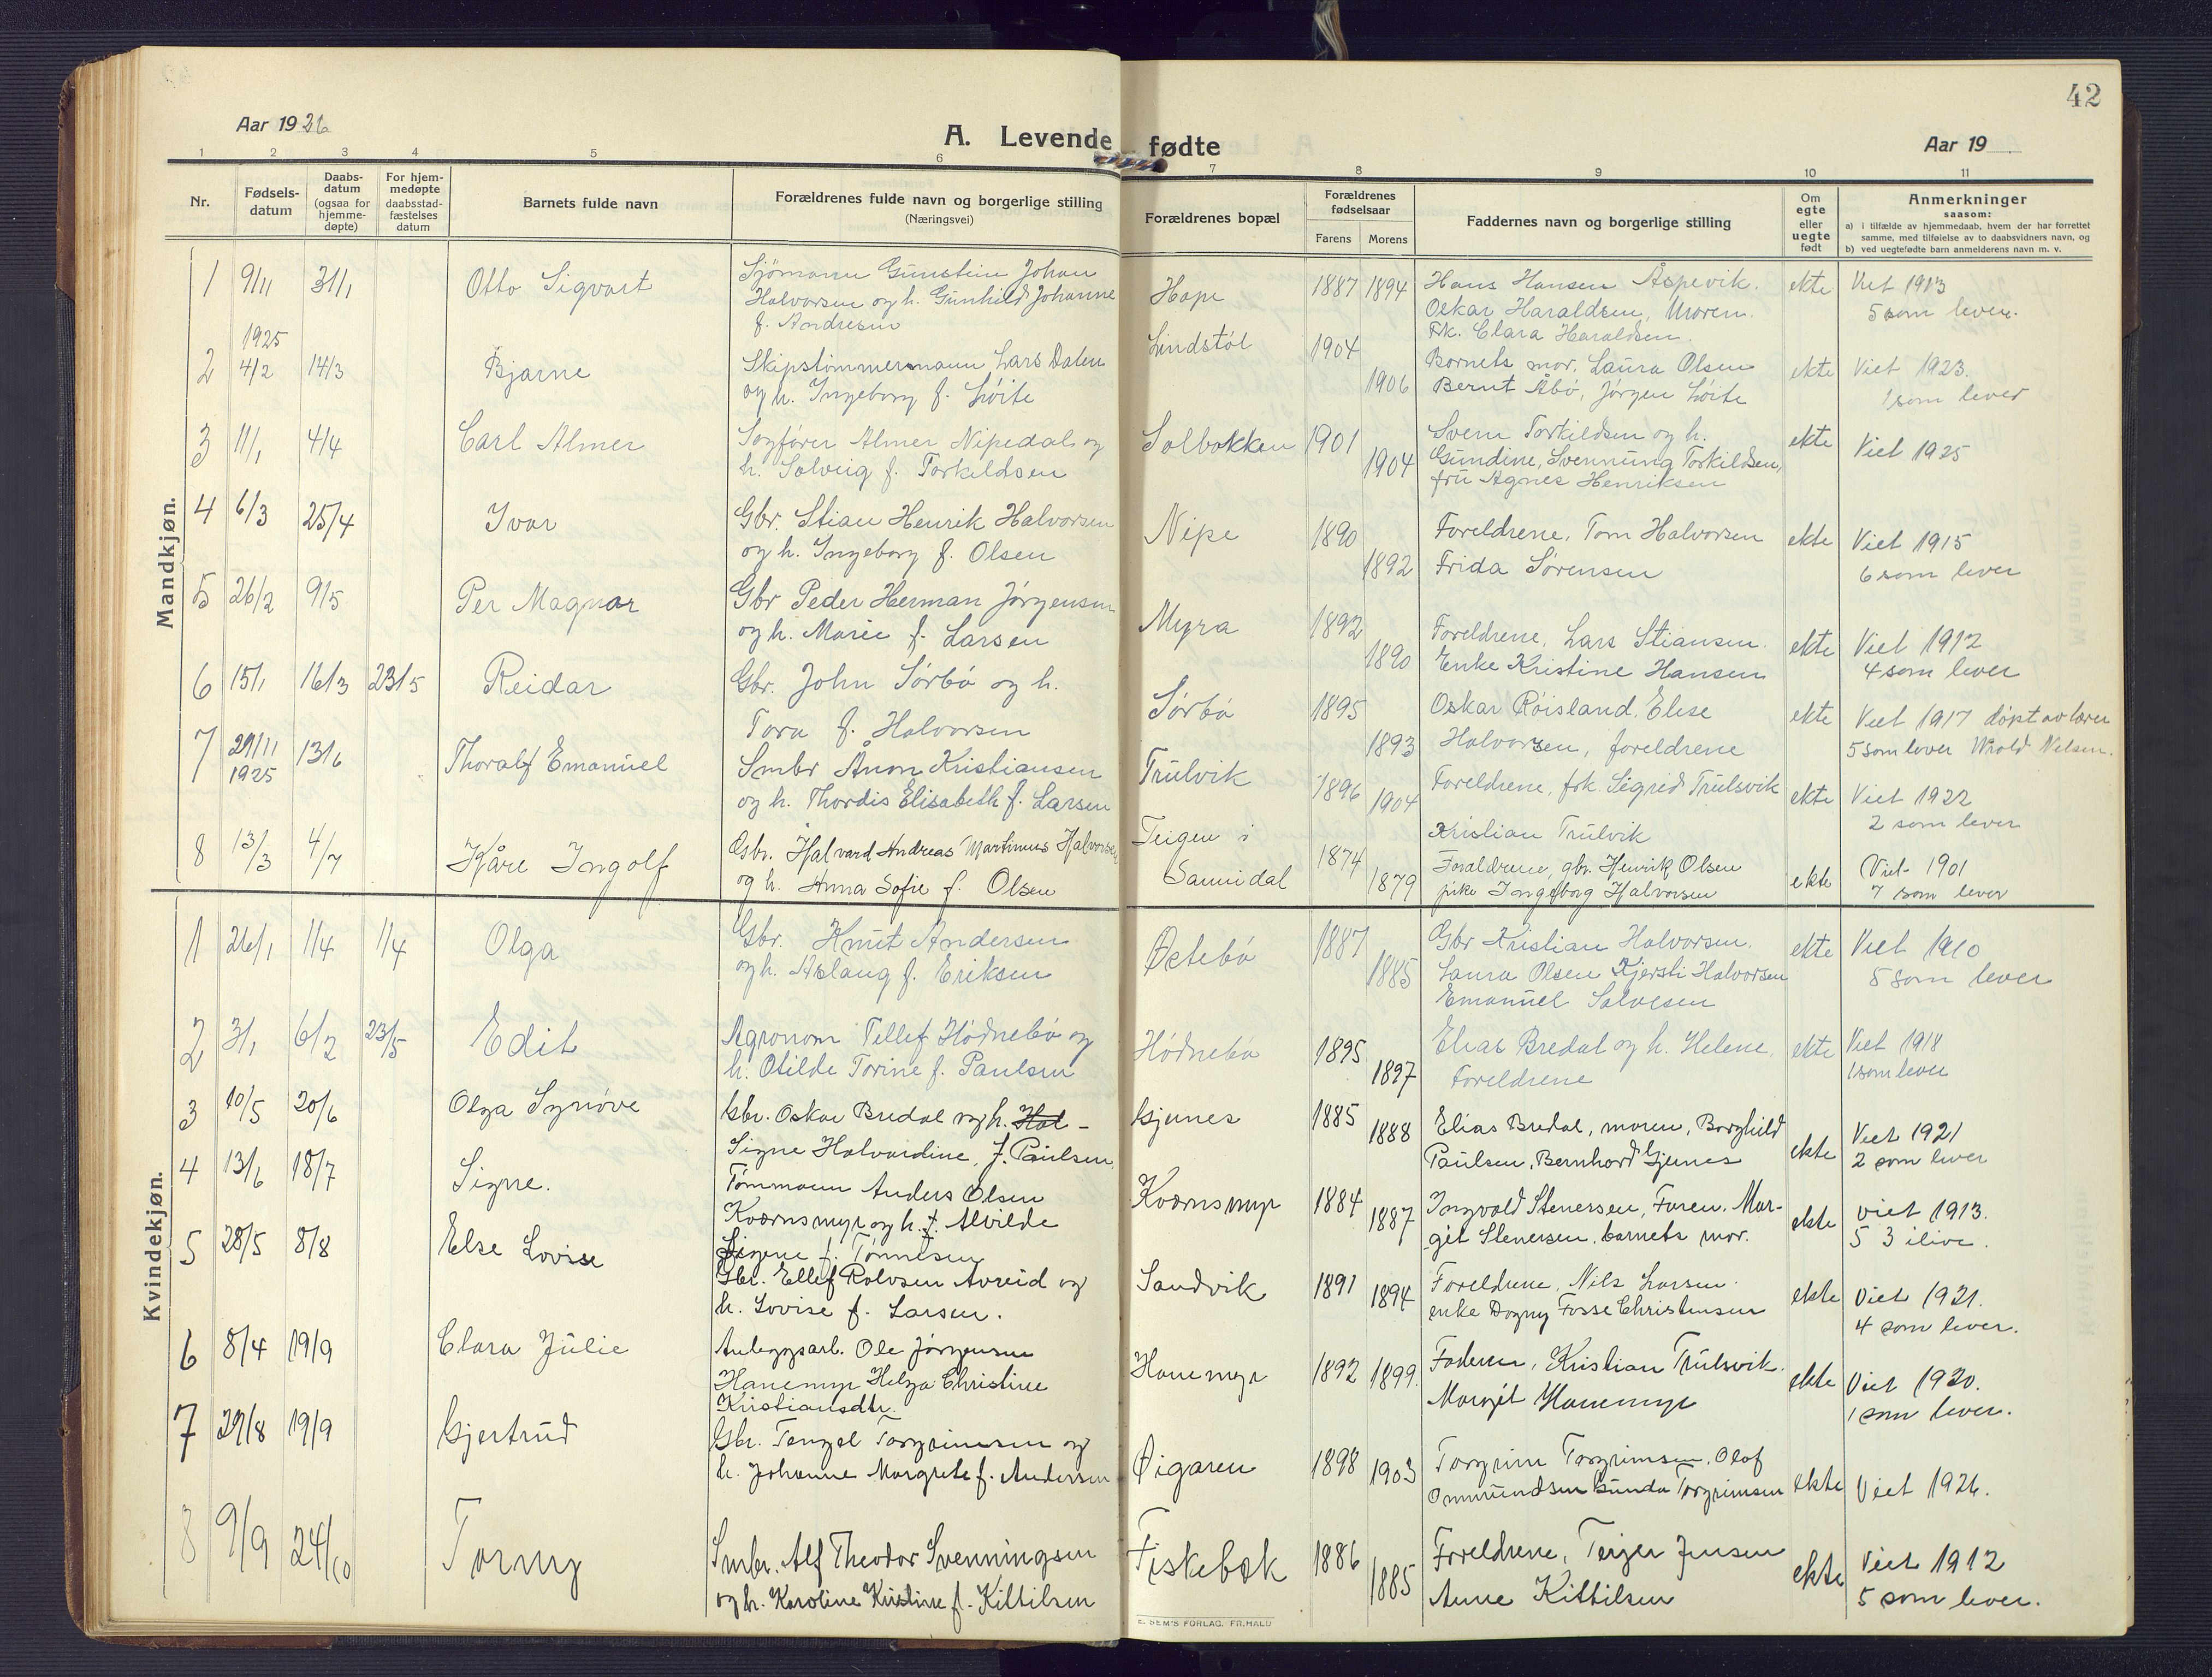 42
Aar 1926
A. Levende fødte
Aar 19
1 2 3 4 5 6 7 8 9 10 11
Nr.
Fødsels-
datum
Daabs-
datum
(ogsaa for
hjemme-
døpte)
For hjem-
medøpte
daabsstad-
fæstelses
datum
Barnets fulde navn
Forældrenes fulde navn og borgerlige stilling
(Næringsvei)
Forældrenes bopæl
Forældrenes
fødselsaar
Farens Morens
Faddernes navn og borgerlige stilling
Om
egte
eller
uegte
født
Anmerkninger
saasom:
a) i tilfælde av hjemmedaab, hvem der har forrettet
samme, med tilføielse av to daabsvidners navn, og
b) ved uegtefødte barn anmelderens navn m. v.
Mandkjøn.
1 9/11 1925 31/1 Otto Sigvart
Sjömann Gunstein Johan
Halvorsen og h. Gunhild Johanne
f. Andresen
Hope 1887 1894
Hans Hansen Åspevik.
Oskar Haraldsen, Moren.
Frk. Clara Haraldsen.
ekte
Viet 1913
5 som lever.
2 4/2 14/3 Bjarne
Skipstømmermann Lars Dalen
og h. Ingeborg f. Löite
Lindstøl 1904 1906
Barnets mor, Laura Olsen
Bernt Åbø, Jørgen Löite
ekte
Viet 1923.
1 som lever
3 11/1 4/4 Carl Almer
Sagfører Almer Nipedal og
h. Solveig f. Torkildsen
Solbakken 1901 1904
Svenn Torkildsen og h.
Gundine, Svennung Torkildsen,
fru Agnes Henriksen
ekte
Viet 1925
4 6/3 25/4 Ivar
Gbr. Stian Henrik Halvorsen
og h. Ingeborg f. Olsen
Nipe 1890 1892
Foreldrene, Tom Halvorsen
Frida Sørensen
ekte
Viet 1915
6 som lever
5 26/2 9/5 Per Magnar
Gbr Peder Herman Jörgensen
og h. Marie f. Larsen
Myra 1892 1890
Foreldrene, Lars Stiansen.
Enke Kristine Hansen
ekte
Viet 1912
4 som lever
6 15/1 16/3 23/5 Reidar
Gbr. John Sörbö og h.
Tora f. Halvorsen
Sörbö 1895 1893
Oskar Röisland, Elise
Halvorsen, foreldrene
ekte
Viet 1917 döpt av lærer
5 som lever Wrold Nelsen.
7 29/11 1925 13/6 Thoralf Emanuel
Smbr Ånon Kristiansen
og h. Thordis Elisabeth f. Larsen
Trulvik 1896 1904
Foreldrene, frk. Sigrid Trulsvik
Kristian Trulvik
ekte
Viet 1922
2 som lever
8 13/3 4/7 Kåre Ingolf
Gbr. Halvard Andreas Martinus Halvorsen
og h. Anna Sofie f. Olsen
Teigen i
Sannidal 1874 1879
Foraldrene, gbr. Henrik Olsen
pike Ingeborg Halvorsen
ekte
Viet 1901
7 som lever
Kvindekjøn.
1 26/1 1/4 1/4 Olga
Gbr. Knut Andersen
og h. Aslaug f. Eriksen
Østebö 1887 1885
Gbr Kristian Halvorsen.
Laura Olsen Kjersti Halvorsen
Emanuel Salvesen
ekte
Viet 1910
5 som lever
2 3/1 6/2 23/5 Edit
Agronom Tellef Hödnebö og
h. Otilde Torine f. Paulsen
Hödnebö 1895 1897
Elias Bredal og h. Helene,
Foreldrene
ekte
Viet 1918
1 som lever
3 10/5 20/6 Olga Synöve
Gbr. Oskar Bredal og h. Hal-
Signe Halvardine, f. Paulsen,
Gjernes 1885 1888
Elias Bredal, moren, Borghild
Paulsen, Bernhard Gjernes
ekte
Viet 1921
2 som lever
4 13/6 18/7 Signe.
Tömmann Anders Olsen
Kvornsmyr og h. f. Alvilde
Sigene f. Tönnesen
Kvornsmyr 1884 1887
Ingvald Stenersen, Faren, Mar-
git Stenersen, barnets mor.
ekte
viet 1913.
5 3 ilive.
5 28/5 8/8 Else Lovise
Gbr. Ellef Rolvsen Avreid og
h. Lovise f. Larsen.
Sandvik 1891 1894
Foreldrene, Nils Larsen.
enke Dagny Fosse Christensen
ekte
Viet 1921.
4 som lever.
6 8/4 19/9 Clara Julie
Anleggsarb. Ole Jörgensen
Hanemyr Helga Christine
Kristiansdtr.
Hanemyr 1892 1899.
Faderen, Kristian Trulsvik.
Margit Hanemyr
ekte
Viet 1920.
1 som lever.
7 29/8 19/9 Gjertrud
Gbr. Tengel Torgrimsen og
h. Johanne Margrete f. Andersen
Øigaren 1898 1903
Torgrim Torgrimsen, Olaf
Ommundsen Gunda Torgrimsen
ekte
Viet 1926.
8 9/9 24/10 Torny
Smbr. Alf Theodor Svenningsen
og h. Karoline Kristine f. Kittilsen
Fiskebæk 1886 1885
Foreldrene, Terjer Jensen
Anne Kittilsen
ekte
Viet 1912
5 som lever.
E. SEM'S FORLAG. FR.HALD